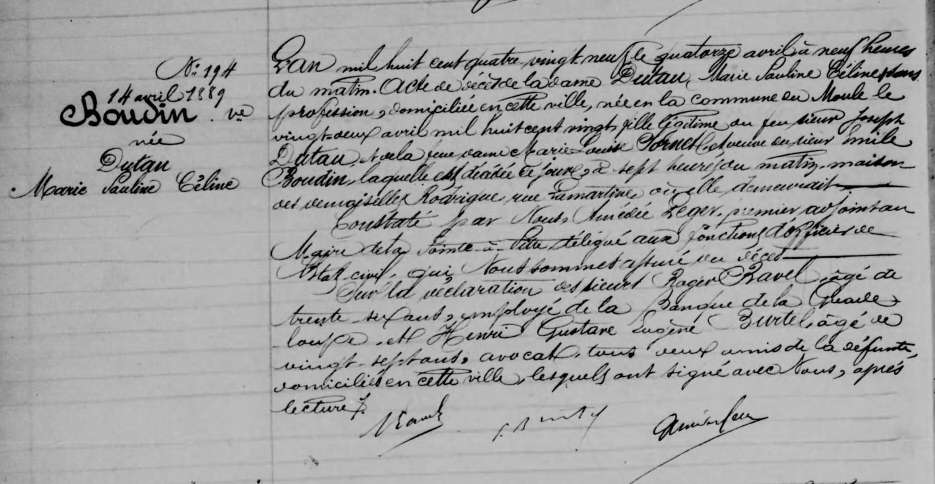 N: 194
14 avril 1889
Boudin . ve
née
Dutau
Marie Pauline Céline
L'an mil huit cent quatre vingt neuf, le quatorze avril à neuf heures
du matin. Acte de décès de la dame Dutau, Marie Pauline Céline, sans
profession, domiciliée en cette ville, née en la commune du Moule le
vingt-deux avril mil huit cent vingt, fille légitime du feu sieur Joseph
Dutau, et de la feue dame Marie Louise et veuve du sieur Emile
Boudin, laquelle est décédée ce jour, à sept heures du matin, maison
des demoiselles Rodrigue, rue Lamartine, où elle demeurait
Constaté par Nous, Amédée Léger, premier adjoint au
Maire de la Pointe-à-Pitre, délégué aux fonctions d'officier de
l'Etat civil, qui Nous sommes assuré du décès
Sur la déclaration des sieurs Roger Ravel, âgé de
trente-six ans, employé de la Banque de la Guade-
loupe, et Henri Gustave Eugène Burtel, âgé de
vingt-sept ans, avocat, tous deux amis de la défunte,
domiciliés en cette ville, lesquels ont signé avec Nous, après
lecture